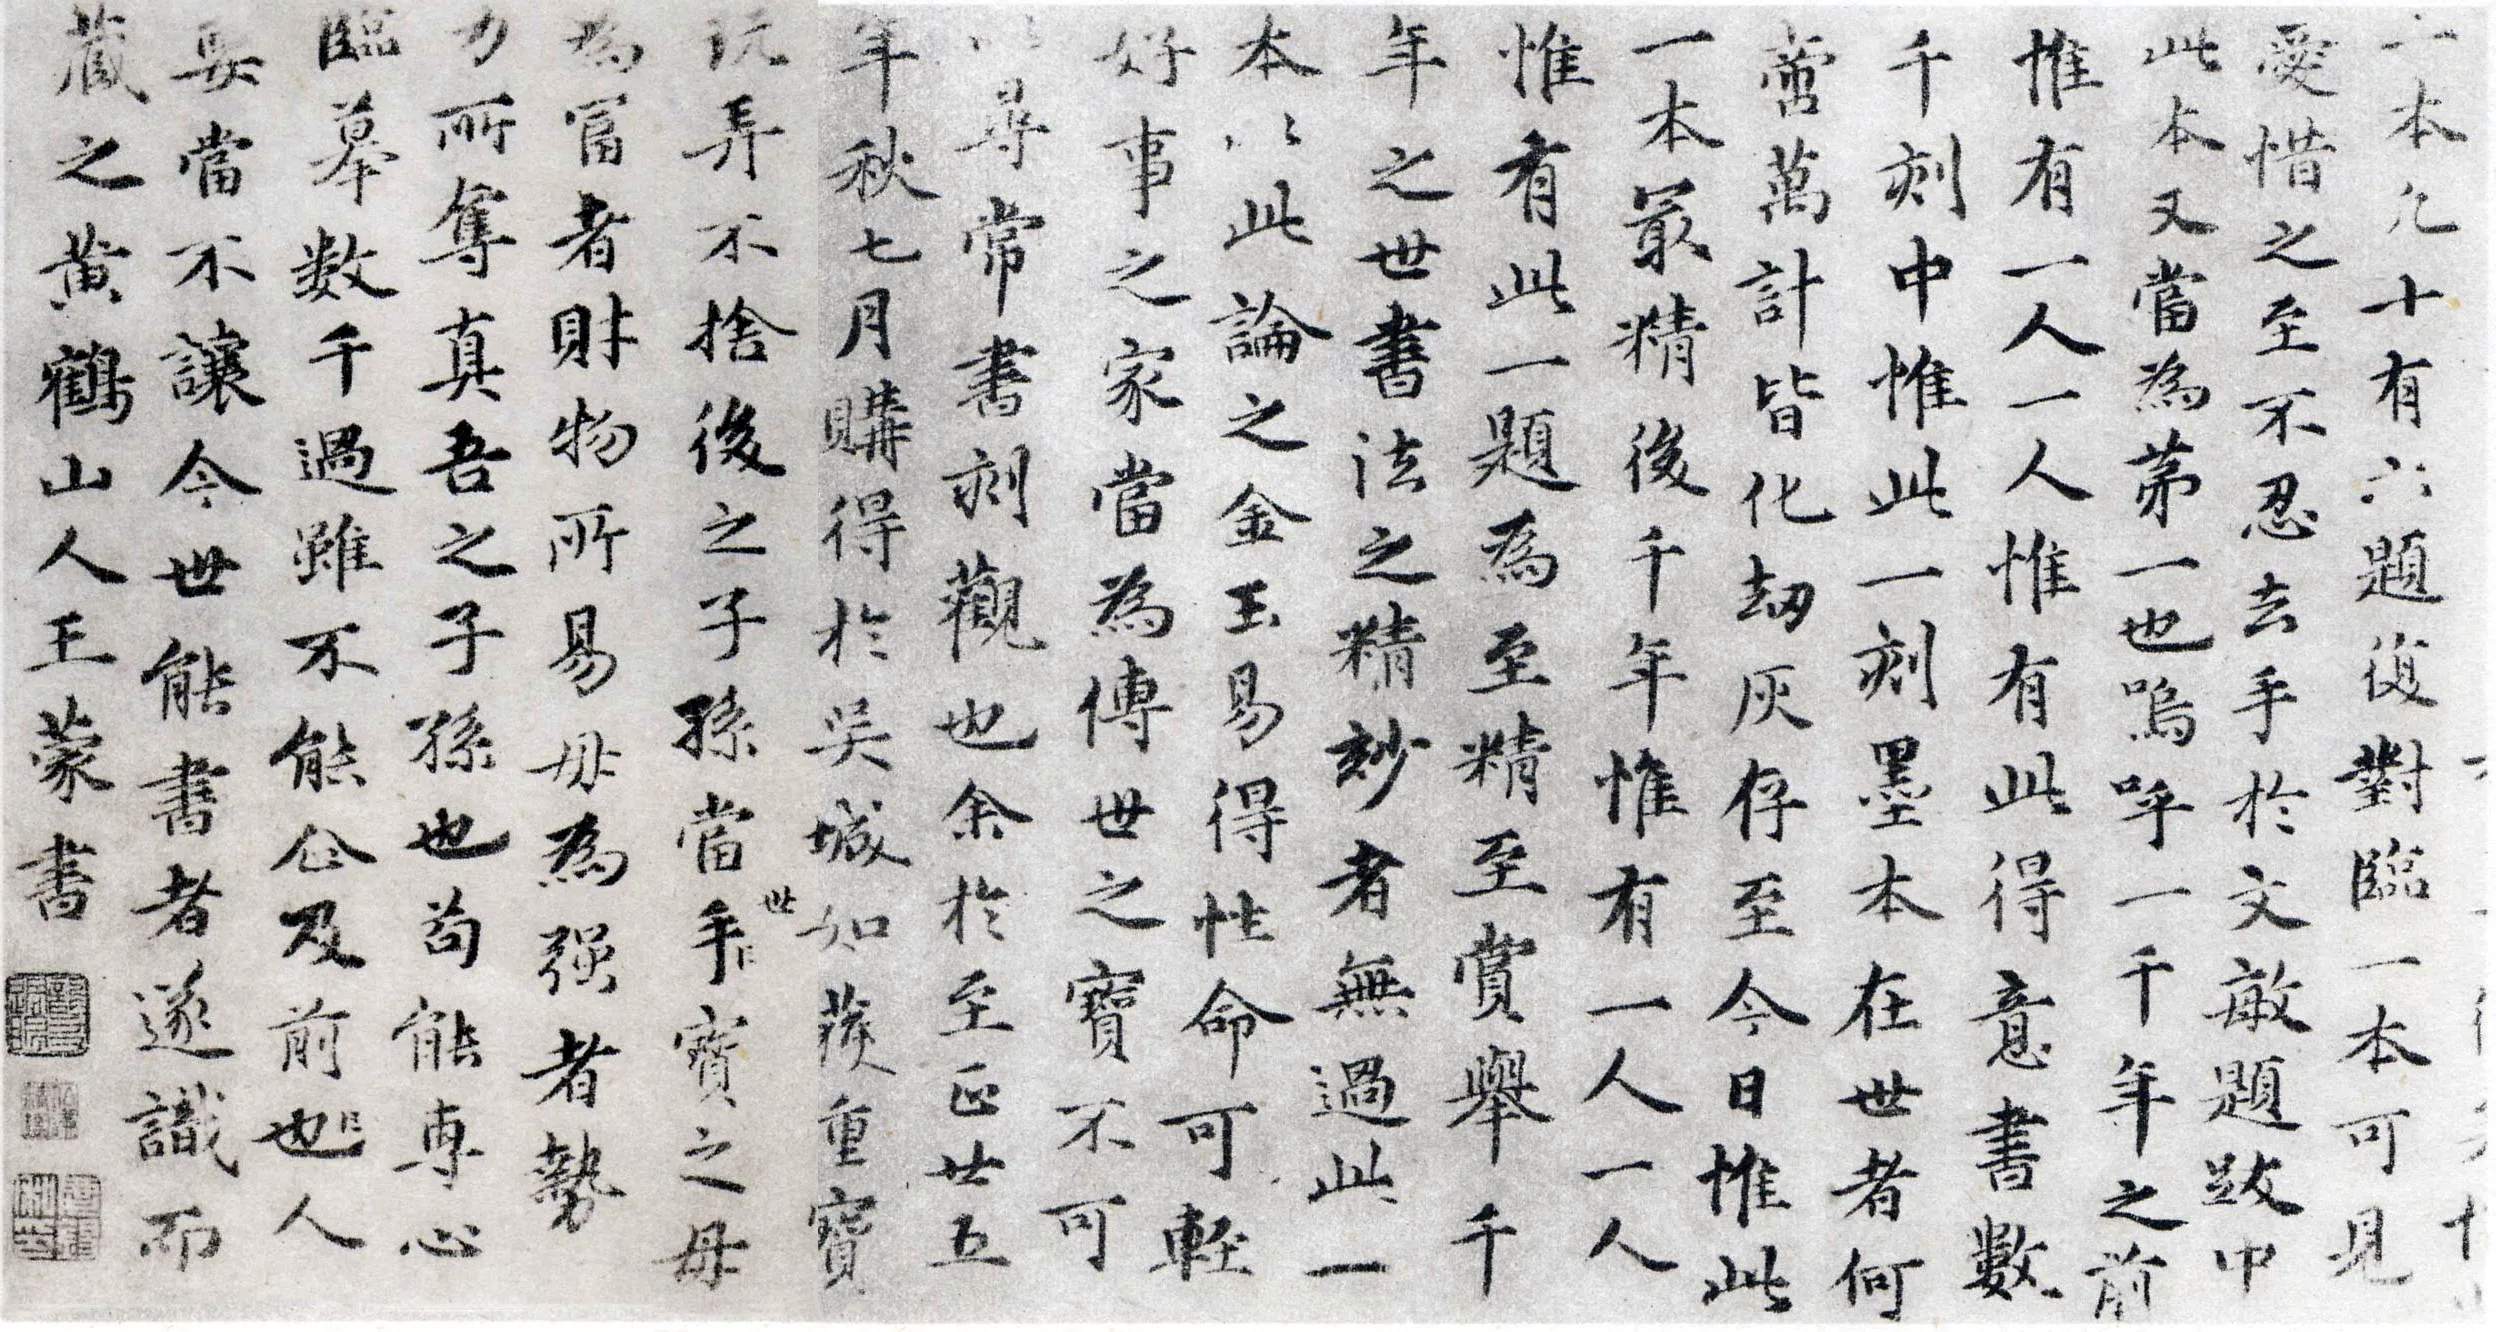 一本凡十有六題復對臨一本可見
愛惜之至不忍去手於文敏題跋中
此本又當為茅一也嗚呼一千年之前
惟有一人一人惟有此得意書數
千刻中惟此一刻墨本在世者何
啻萬計皆化劫灰存至今日惟此
一本最精後千年惟有一人一人
惟有此一題為至精至賞舉千
年之世書法之精妙者無過此一
本以此論之金玉易得性命可輕
好事之家當為傳世之寶不可
以尋常書刻觀也余於至正廿五
年秋七月購得於吳城如獲重寶
玩弄不捨後之子孫當世手寶之毋
為富者財物所易毋為强者勢
力所奪真吾之子孫也苟能專心
臨摹数千過雖不能企及前也人
要當不讓今世能書者遂識而
藏之黄鶴山人王蒙書